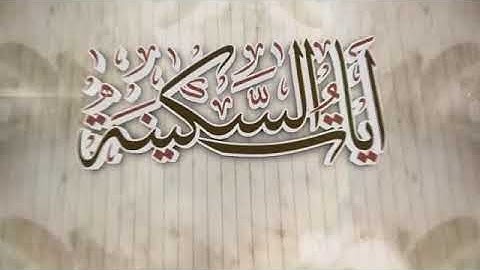 آيَاتُ السَّكِينَة